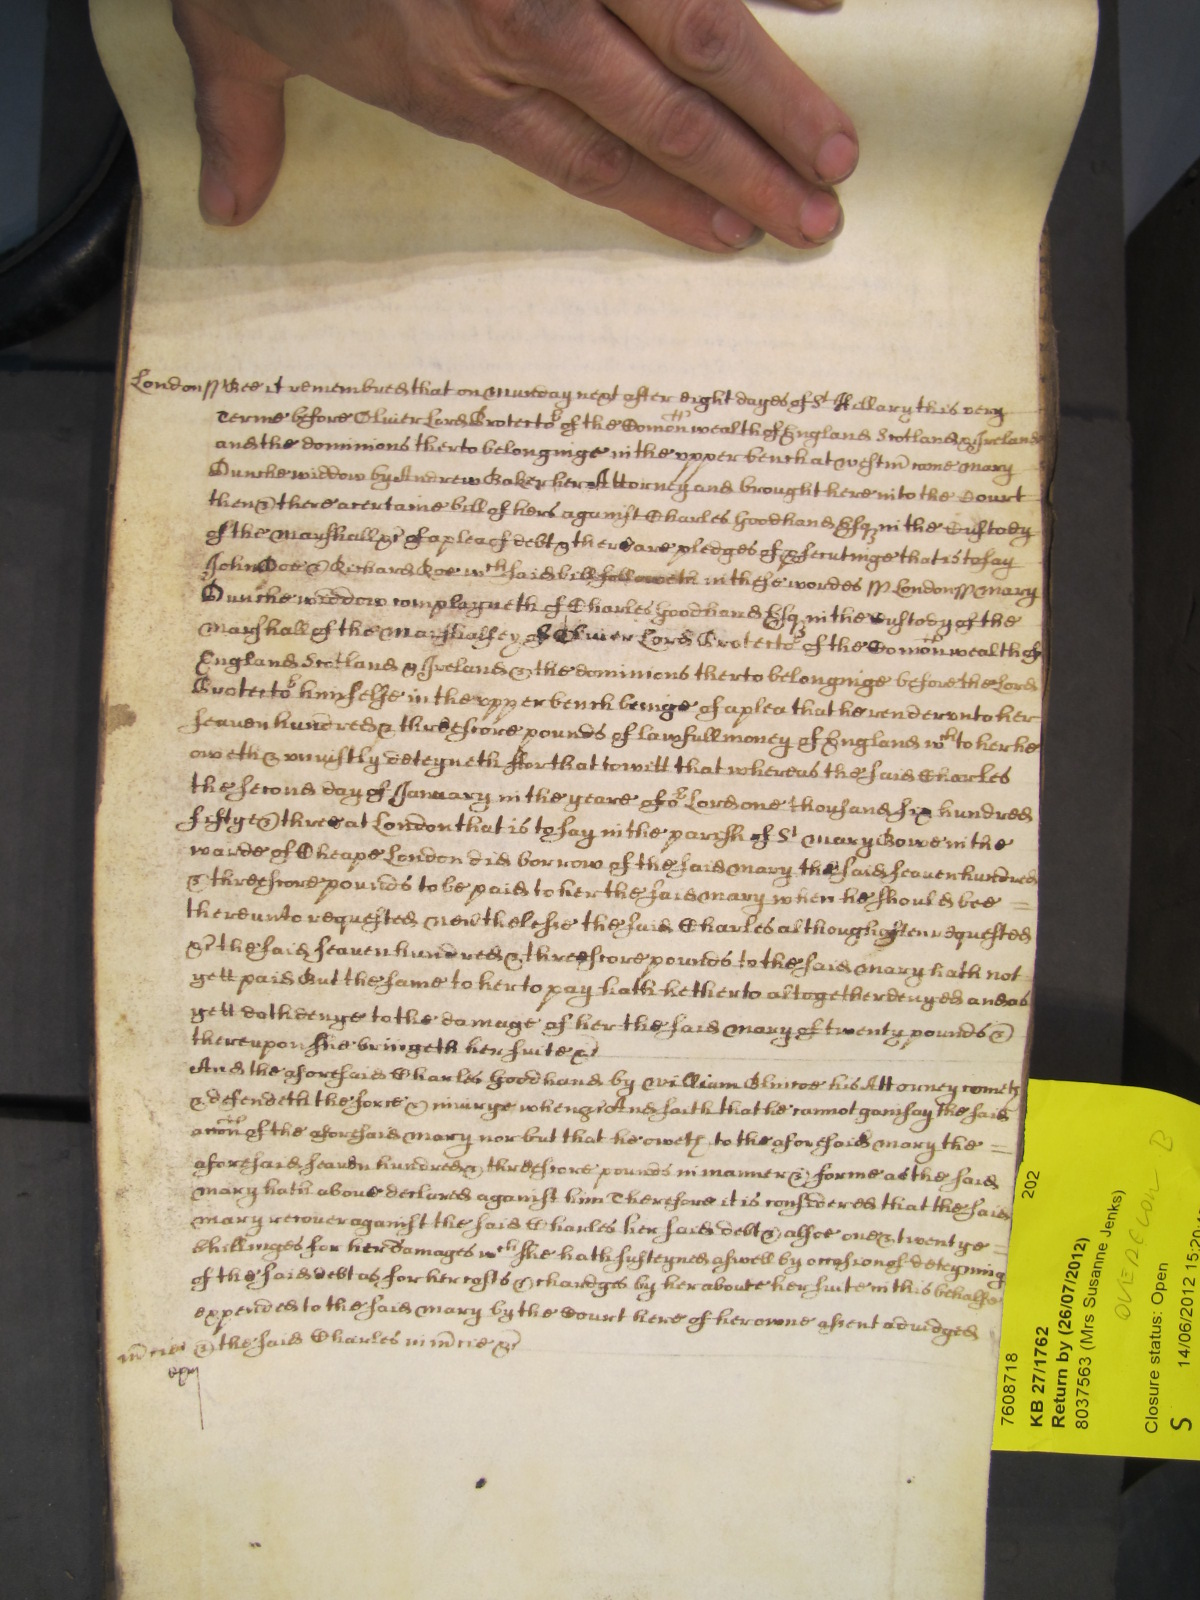 London ss Bee it remembred that on Munday next after eight dayes of St Hillary this very
Terme before Oliver Lord Protector of the Comon wealth of England Scotland & Ireland
and the dominions therto belonginge in the upper bench at westm̄ come Mary
Dunche widdow by Andrew Baker her Attorney and brought here into the Court
then & there a certaine bill of hers against Charles Goodhand Esq in the Custody
of the Marshall &c of a plea of debt & there are pledges of p̱secutinge that is to say
John Doe & Richard Roe wch said bill followeth in these wordes ss London ss Mary
Dunche widdow complayneth of Charles Goodhand Esq in the Custody of the
Marshall of the Marshalsey of Oliver Lord Protector of the Comon wealth of
England Scotland & Ireland & the dominions therto belonginge before the Lord
Protector himselfe in the upper bench beinge of a plea that he render unto her
seaven hundred & threescore pounds of lawfull money of England wch to her he
oweth & uniustly deteyneth ffor that to witt that whereas the said Charles
the second day of January in the yeare of or Lord one thousand six hundred
fiftye & three at London that is to say in the parish of St Mary Bowe in the
warde of Cheape London did borrow of the said Mary the said seaven hundred
& threescore pounds to be paid to her the said Mary when he should bee =
thereunto requested neverthelesse the said Charles although often requested
&c the said seaven hundred & threescore pounds to the said Mary hath not
yett paid But the same to her to pay hath hetherto altogether denyed and as
yett doth denye to the damage of her the said Mary of twenty pounds &
thereupon she bringeth her suite &c
And the aforesaid Charles Goodhand by William Blincoe his Attorney cometh
& defendeth the force & iniurye when &c And saith that he cannot gainsay the said
accon of the aforesaid Mary nor but that he oweth to the aforesaid Mary the =
aforesaid seaven hundred & threescore pounds in manner & forme as the said
Mary hath above declared against him Therefore it is considered that the said
Mary recover against the said Charles her said debt & alsoe one & twentye =
shillinges for her damages wch she hath susteyned aswell by occasion of deteyning
of the said debt as for her costs & chardges by her about her suite in this behalfe
expended to the said Mary by the Court here of her owne assent adiudged
m̄cie & the said Charles in m̄cie &c
7608718 202
KB 27/1762
Return by (26/07/2012)
8037563 (Mrs Susanne Jenks)
Closure status: Open
S 14/06/2012 15:20